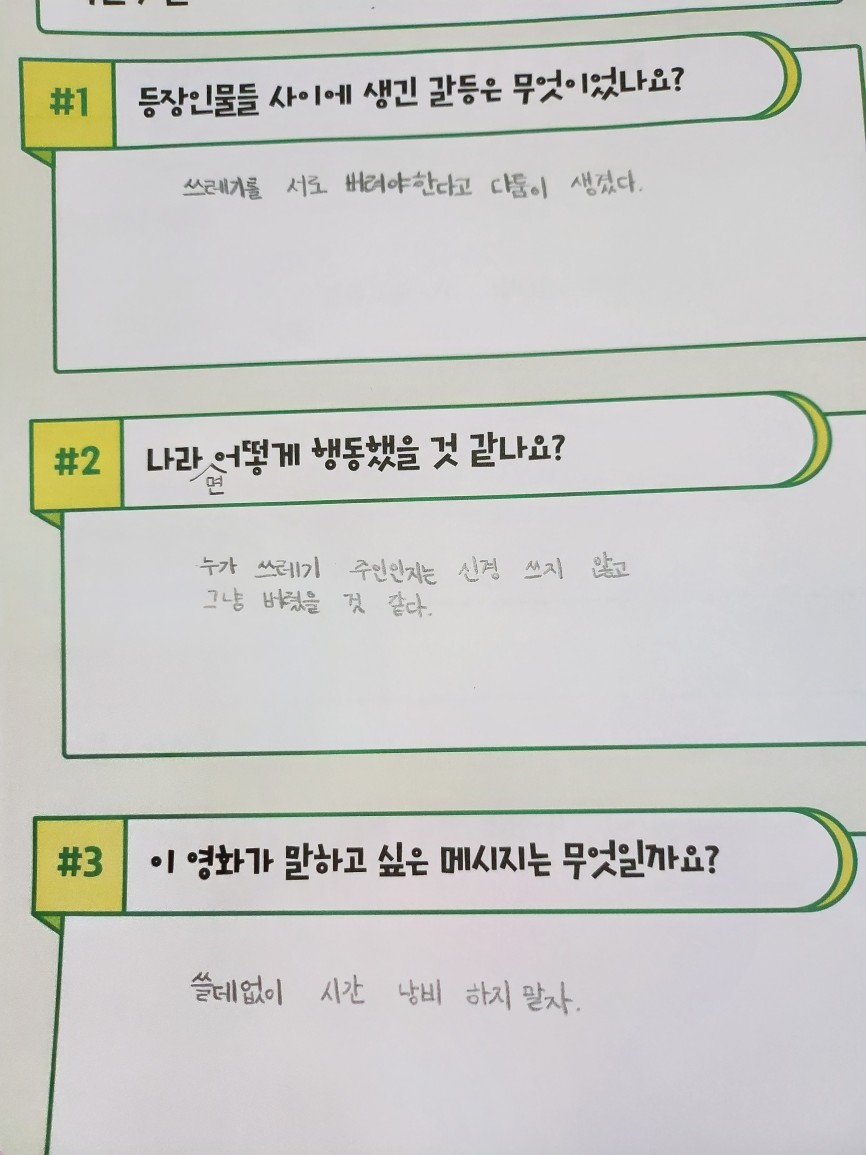 #1 등장인물들 사이에 생긴 갈등은 무엇이었나요?
쓰레기를 서로 버려야한다고 다툼이 생겼다.
#2 나라면 어떻게 행동했을 것 같나요?
누가 쓰레기 주인인지는 신경 쓰지 않고
그냥 버렸을 것 같다.
#3 이 영화가 말하고 싶은 메시지는 무엇일까요?
쓸데없이 시간 낭비 하지 말자.